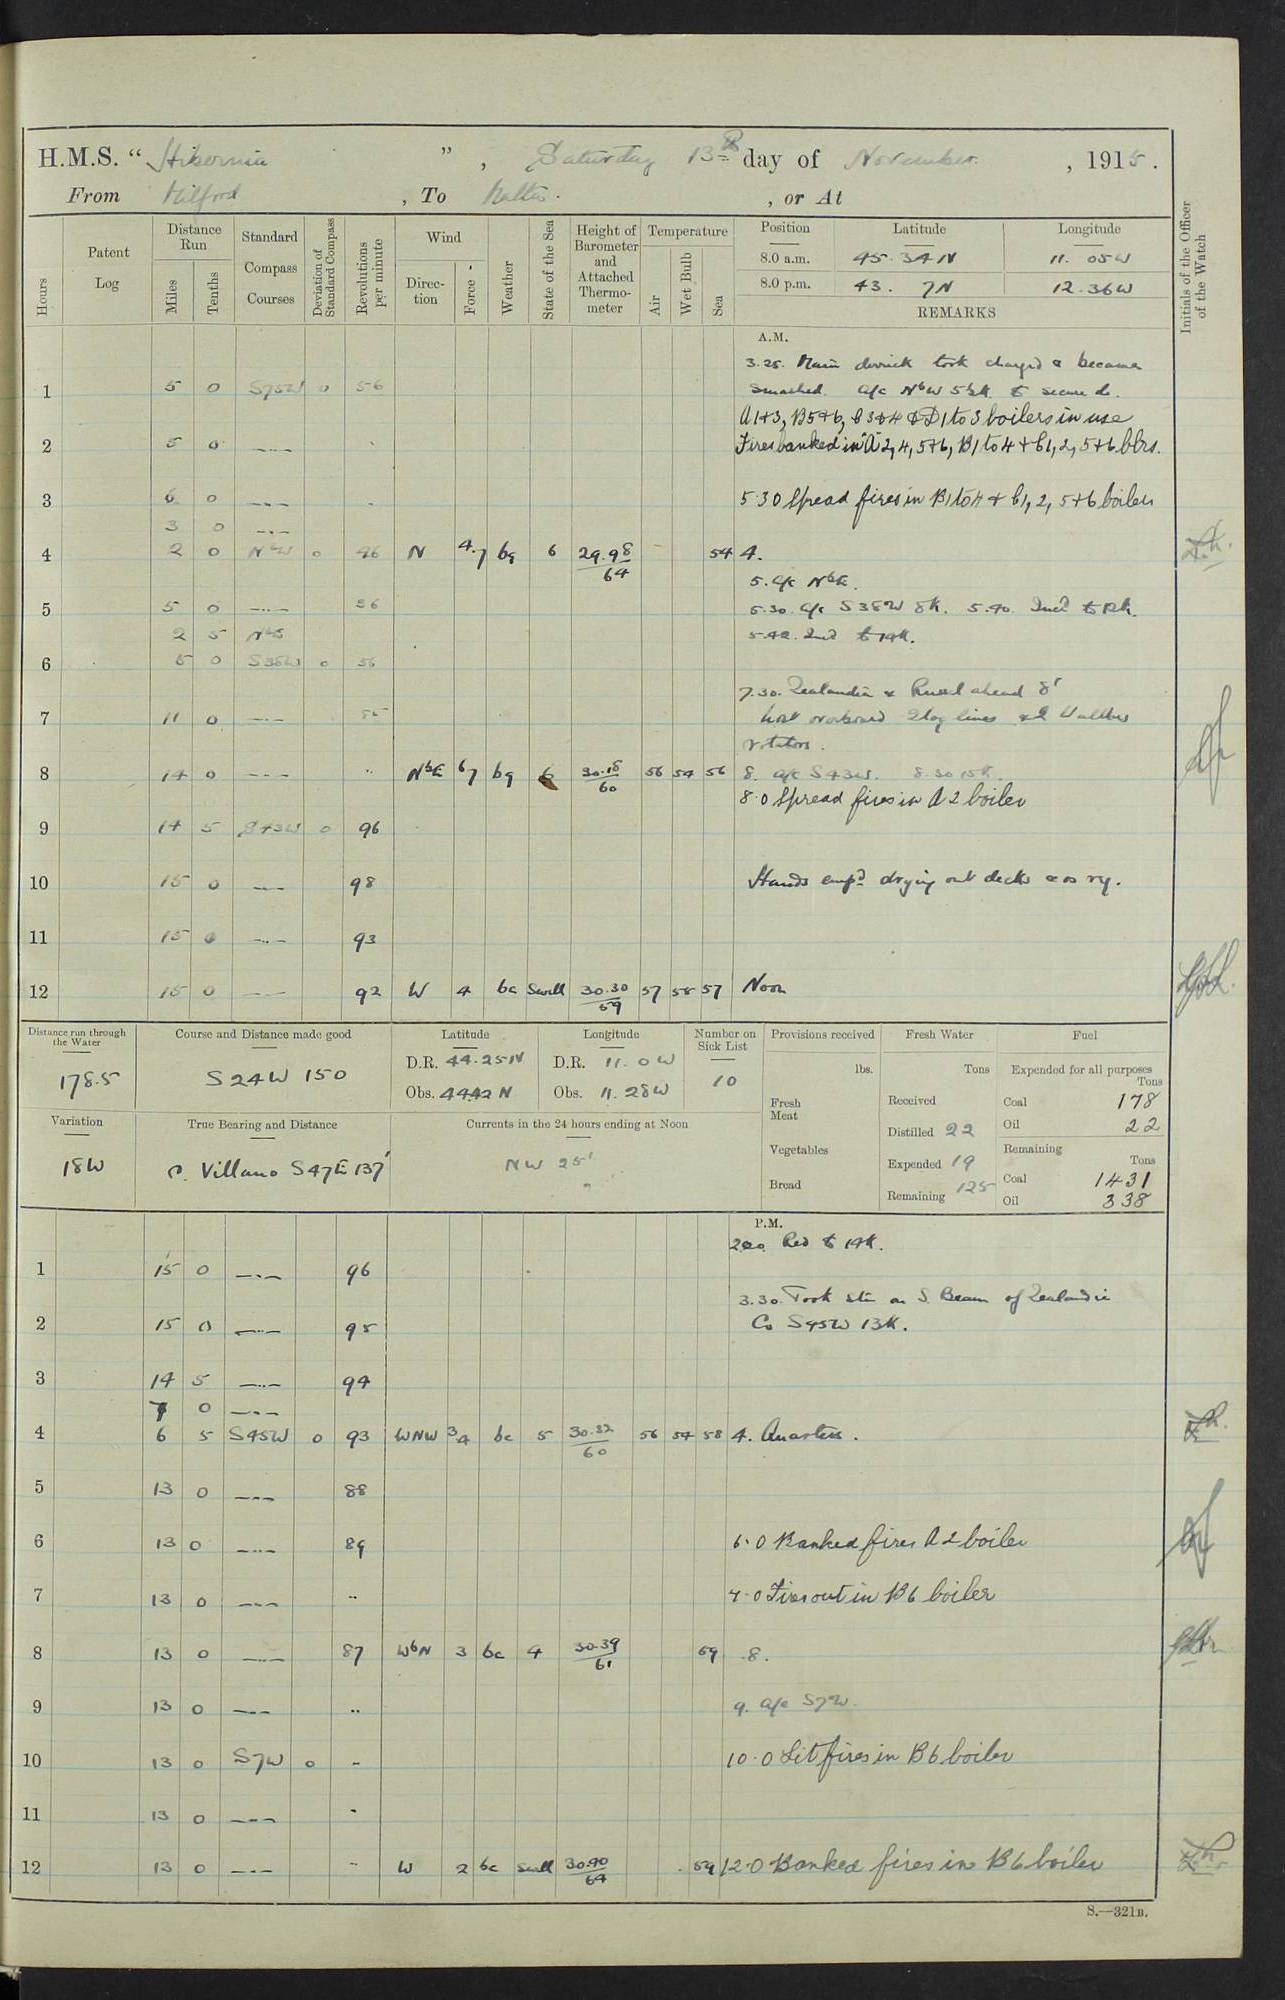 H.M.S. “ Hibernia ” , Saturday 13th day of November , 1915 .
From Milford , To Malta . , or At
Hours
Patent Log
Distance Run
Miles
Tenths
Standard Compass Courses
Deviation of Standard Compass
Revolutions per minute
Wind
Direction
Force
Weather
State of the Sea
Height of Barometer and Attached Thermometer
Temperature
Air
Wet Bulb
Sea
Position Latitude Longitude
8.0 a.m. 45. 34 N 11. 05 W
8.0 p.m. 43. 7 N 12. 36 W
REMARKS
Initials of the Officer of the Watch
A.M.
3.25. Main derrick took charge & became
1 5 0 S75W 0 56 smashed. a/c NbW 5½k. to secure do.
A1+3, B5+6, C3+4 & D1 to 3 boilers in use
2 5 0 —..— Fires banked in "A" 2, 4, 5+6, B1 to 4 + C1, 2, 5+6 blrs.
3 6 0 —..— 5.30 Spread fires in B1 to 4 + C1, 2, 5+6 boilers
3 0 —..—
4 2 0 NbW 0 46 N 4.7 bq 6 29.98/64 54 4.
5. a/c NbE.
5 5 0 —..— 36 5.30. a/c S38W 8k. 5.40. Incd to 12k.
2 5 5.42. Incd to 14k.
6 5 0 S38W 0 56
7.30. Zealandia & Russell ahead 8'
7 11 0 —..— 85 Lost overboard 2 log lines & 2 Walkers
rotators.
8 14 0 —..— .. NbE 6/7 bq 6 30.18/60 56 54 56 8. a/c S43W. 8.30 15k.
8.0 Spread fires in A2 boiler
9 14 5 S43W 0 96
10 15 0 —..— 98 Hands empd drying out decks & as rq.
11 15 0 —..— 93
12 15 0 —..— 92 W 4 bc Swell 30.30/59 57 55 57 Noon
Distance run through the Water
178.5
Course and Distance made good
S 24 W 150
Latitude
D.R. 44.25 N
Obs. 44.42 N
Longitude
D.R. 11. 0 W
Obs. 11. 28 W
Number on Sick List
10
Provisions received
lbs.
Fresh Meat
Vegetables
Bread
Fresh Water
Tons
Received
Distilled 22
Expended 19
Remaining 125
Fuel
Expended for all purposes
Tons
Coal 178
Oil 22
Remaining
Tons
Coal 1431
Oil 338
Variation
18 W
True Bearing and Distance
C. Villano S 47 E 137'
Currents in the 24 hours ending at Noon
NW 25'
P.M.
2.20 Red to 14k.
1 15 0 —..— 96
3.30. Took stn on S. Beam of Zealandia
2 15 0 —..— 95 Co S45W 13k.
3 14 5 —..— 94
7 0 —..—
4 6 5 S45W 0 93 WNW 3/4 bc 5 30.32/60 56 54 58 4. Quarters.
5 13 0 —..— 88
6 13 0 —..— 89 6.0 Banked fires A2 boiler
7 13 0 —..— .. 7.0 Fires out in B6 boiler
8 13 0 —..— 87 WbN 3 bc 4 30.39/61 59 8.
9 13 0 —..— .. 9. a/c S7W.
10 13 0 S7W 0 .. 10.0 Lit fires in B6 boiler
11 13 0 —..— ..
12 13 0 —..— .. W 2 bc Swell 30.40/64 59 12.0 Banked fires in B6 boiler
S.—321B.